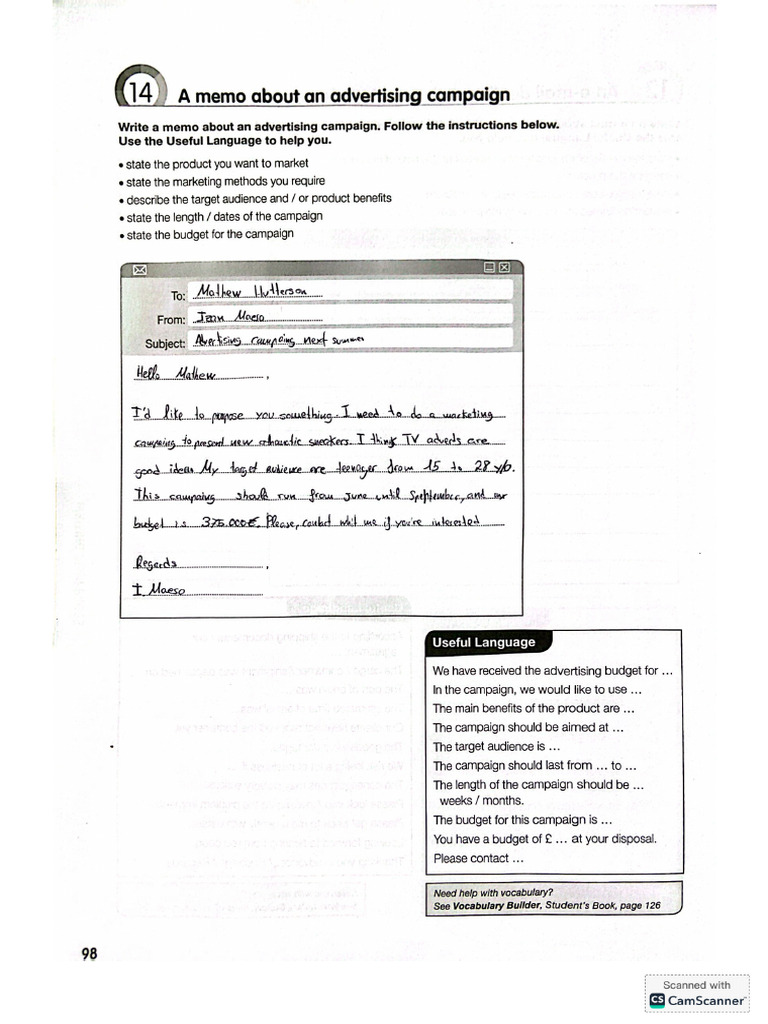 14 A memo about an advertising campaign
Write a memo about an advertising campaign. Follow the instructions below.
Use the Useful Language to help you.
• state the product you want to market
• state the marketing methods you require
• describe the target audience and / or product benefits
• state the length / dates of the campaign
• state the budget for the campaign
To: Mathew Hutterson
From: Maeso
Subject: Advertising campaing next summer
Hello Mathew,
I'd like to propose you something. I need to do a marketing
campaing to present new sneakers. I think TV adverts are
good ideas. My target audience are teenager from 15 to 28 y/o.
This campaing should run from June until Speptember, and our
budget is 375.000€. Please, contact whit me if you're interested
Regards,
I Maeso
Useful Language
We have received the advertising budget for ...
In the campaign, we would like to use ...
The main benefits of the product are ...
The campaign should be aimed at ...
The target audience is ...
The campaign should last from ... to ...
The length of the campaign should be ...
weeks / months.
The budget for this campaign is ...
You have a budget of £ ... at your disposal.
Please contact ...
Need help with vocabulary?
See Vocabulary Builder, Student's Book, page 126
98
Scanned with
CS CamScanner